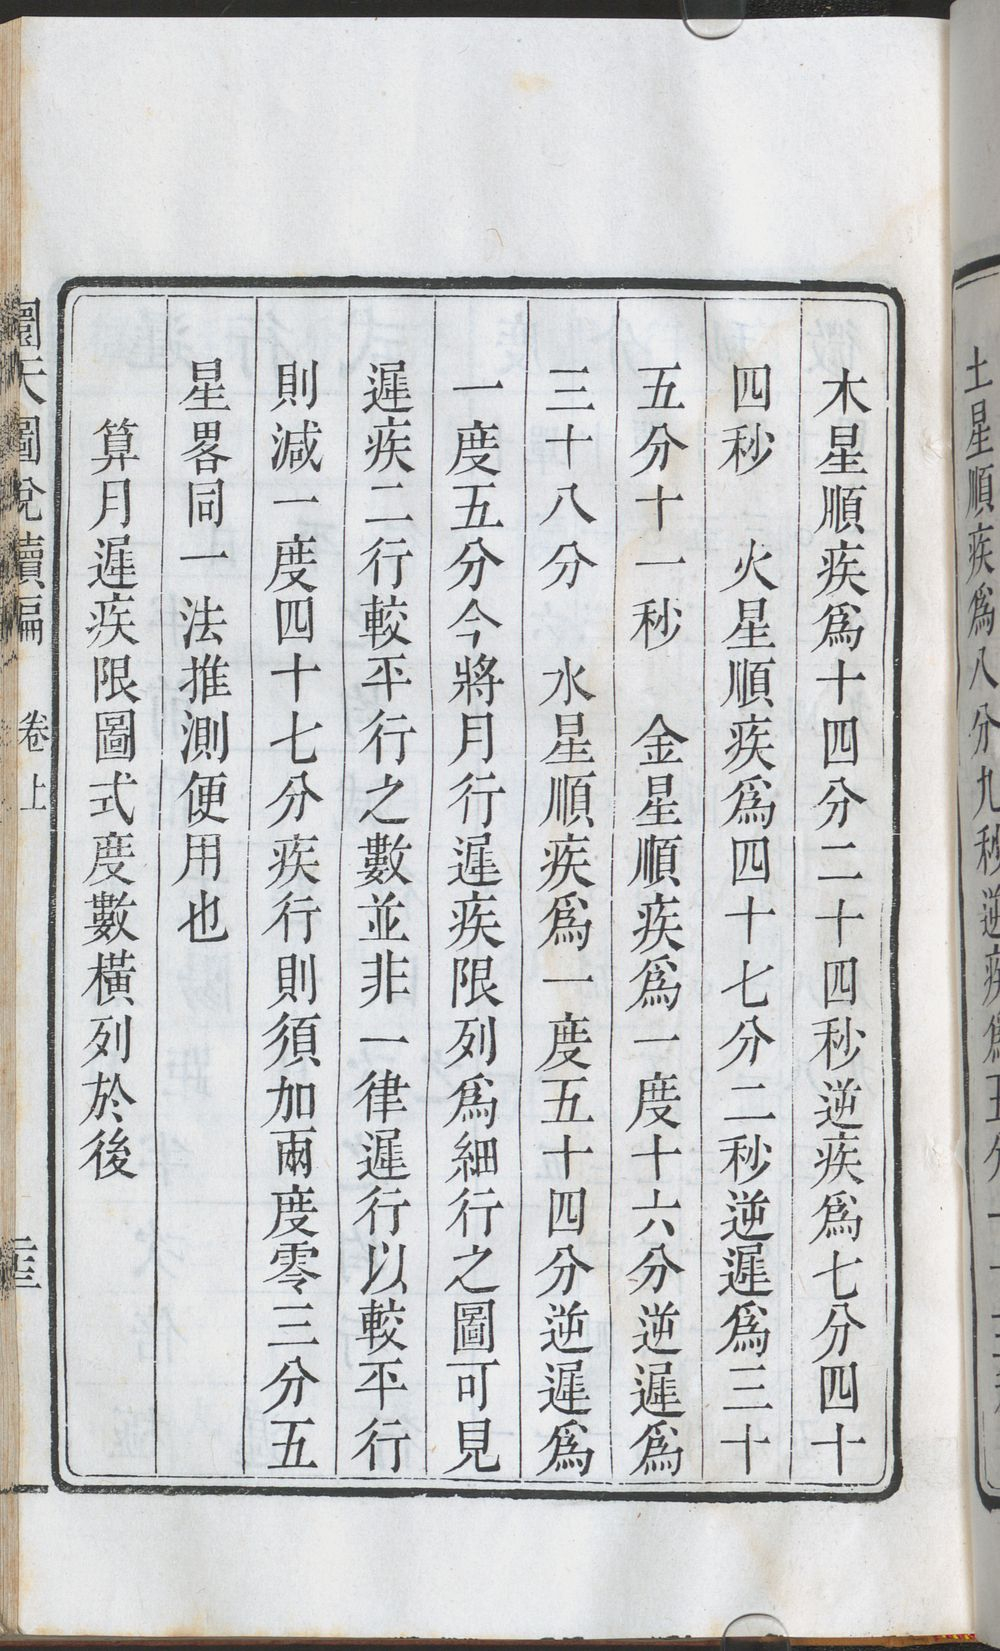 土星順疾爲八分九秒逆疾爲五分
木星順疾爲十四分二十四秒逆疾爲七分四十
四秒　火星順疾爲四十七分二秒逆遲爲三十
五分十一秒　金星順疾爲一度十六分逆遲爲
三十八分　水星順疾爲一度五十四分逆遲爲
一度五分今將月行遲疾限列爲細行之圖可見
遲疾二行較平行之數並非一律遲行以較平行
則減一度四十七分疾行則須加兩度零三分五
星畧同一法推測便用也
算月遲疾限圖式度數橫列於後
圜天圖說續編　卷上